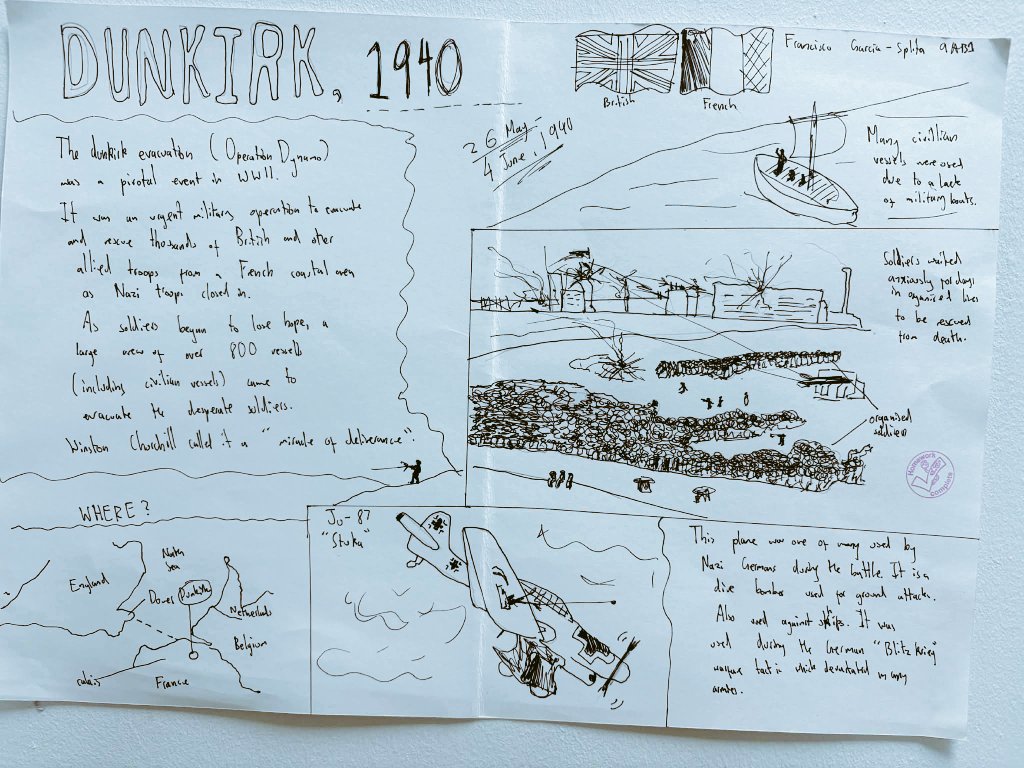 DUNKIRK, 1940
British
French
Francisco Garcia-Splita 9AB1
26 May
4 June, 1940
The dunkirk evacuation (Operation Dynamo)
was a pivotal event in WWII.
It was an urgent military operation to evacuate
and rescue thousands of British and other
allied troops from a French coastal area
as Nazi troops closed in.
As soldiers began to lose hope, a
large area of over 800 vessels
(including civilian vessels) came to
evacuate the desperate soldiers.
Winston Churchill called it a "miracle of deliverance".
Many civilian
vessels were used
due to a lack
of military boats.
Soldiers waited
anxiously for days
in organised lines
to be rescued
from death.
organised
soldiers
Homework
Complete
WHERE?
North
Sea
England
Dover
Dunkirk
Netherlands
Belgium
calais
France
Ju-87
"Stuka"
This plane was one of many used by
Nazi Germans during the battle. It is a
dive bomber used for ground attacks.
Also used against ships. It was
used during the German "Blitzkrieg"
unique tactic which devastated many
armies.